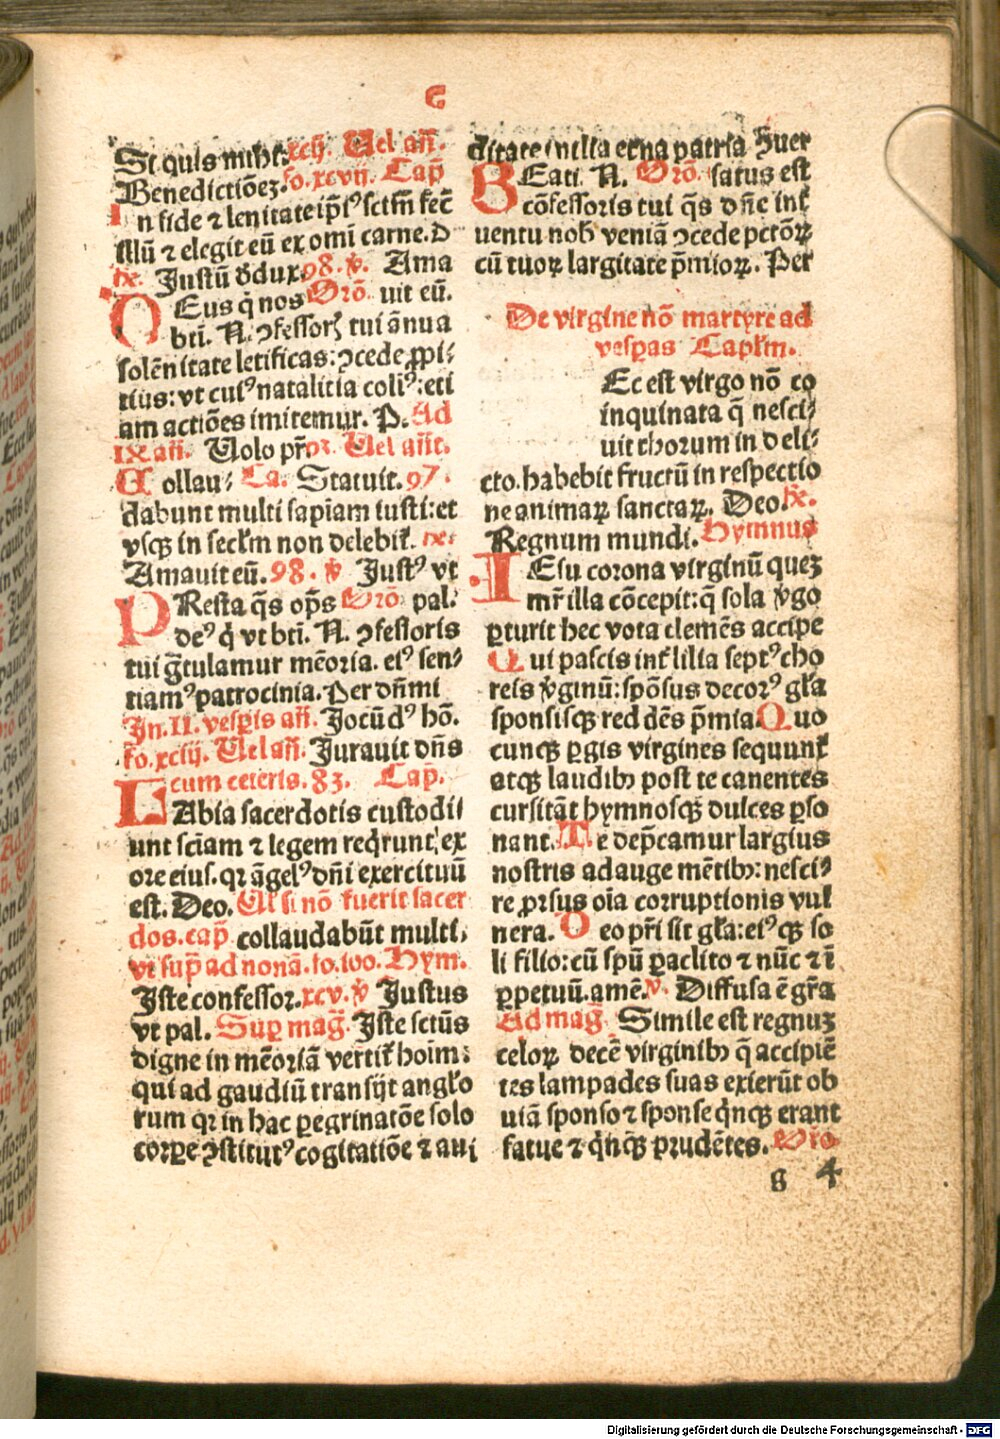 C
Si quis mihi. xcij. Uel añ.
Benedictiõeꝫ. fo. xcvij. Cap̃
In fide ⁊ lenitate ip̃iꝰ sctm̃ fec̃
illũ ⁊ elegit eũ ex om̃i carne. D
ꝶ. Justũ ddux. 98. ℣. Ama
Eus q̃ nos Orõ. uit eũ.
bti. N. ꝯfessorꝭ tui ãnua
solẽnitate letificas: ꝯcede ꝓpi-
tius: vt cuiꝰ natalitia coliꝰ: eti
am actiões imitemur. P. Ad
IX añ. Uolo pr̃. Uel añt.
Collau- Ca. Statuit. 97.
dabunt multi sapiam iusti: et
vsqꝫ in seclm̃ non delebit̃. ꝶ:
Amauit eũ. 98. ℣ Justꝰ vt
PResta q̃s op̃s Orõ pal.
deꝰ q̃ vt bti. N. ꝯfessoris
tui g̃tulamur mẽoria. eiꝰ sen-
tiamꝰ patrocinia. Per dñmi
In. II. vesꝑis añ. Jocũdꝰ hõ.
fo. xciij. Uel añ. Jurauit dñs
cum ceteris. 83. Cap̃.
LAbia sacerdotis custodii
unt sciam ⁊ legem reqrunt, ex
ore eius. qꝛ ãgelꝰ dñi exercituũ
est. Deo. Ul si nõ fuerit sacer
dos. cap̃ collaudabũt multi,
vt sup̃ ad nonã. fo. 100. Hym.
Iste confessor. xcv. ℣ Justus
vt pal. Suꝑ mag̃. Iste sctũs
digne in mẽoriã vertit̃ hoim:
qui ad gaudiũ transijt anglo
rum qꝛ in hac ꝑegrinatõe solo
corꝑe ꝯstitutꝰ cogitatiõe ⁊ aui
ditate in illa eterna patria Suer
BEati. N. Orõ. satus est
cõfessoris tui q̃s dñe int̃
uentu nob̃ veniã ꝯcede pctõꝝ
cũ tuoꝝ largitate p̃mioꝝ. Per
De virgine nõ martyre ad
vesꝑas Capl̃m.
Ec est virgo nõ co
inquinata q̃ nesci-
uit thorum in deli-
cto. habebit fructũ in respectio
ne animaꝝ sanctaꝝ. Deo. ꝶ.
Regnum mundi. Hymnus
IEsu corona virginũ queꝫ
mr̃ illa cõcepit: q̃ sola ℣go
ꝑturit hec vota clemẽs accipe
Qui pascis int̃ lilia septꝰ cho
reis ℣ginũ: spõsus decorꝰ gl̃a
sponsisqꝫ reddẽs p̃mia. Quo
cunqꝫ ꝑgis virgines sequunt̃
atqꝫ laudibꝰ post te canentes
cursitãt hymnosqꝫ dulces ꝑso
nant. Te dep̃camur largius
nostris adauge mẽtibꝰ: nesci-
re ꝓrsus oĩa corruptionis vul
nera. Deo pr̃i sit gl̃a: eiꝰqꝫ so
li filio: cũ spũ ꝑaclito ⁊ nũc ⁊ ĩ
ꝑpetuũ. amẽ. ℣. Diffusa ẽ gr̃a
Ad mag̃ Simile est regnuꝫ
celoꝝ decẽ virginibꝰ q̃ accipiẽ
tes lampades suas exierũt ob
uiã sponso ⁊ sponse q̃nqꝫ erant
fatue ⁊ q̃nqꝫ prudẽtes. Oro
g 4
Digitalisierung gefördert durch die Deutsche Forschungsgemeinschaft - DFG